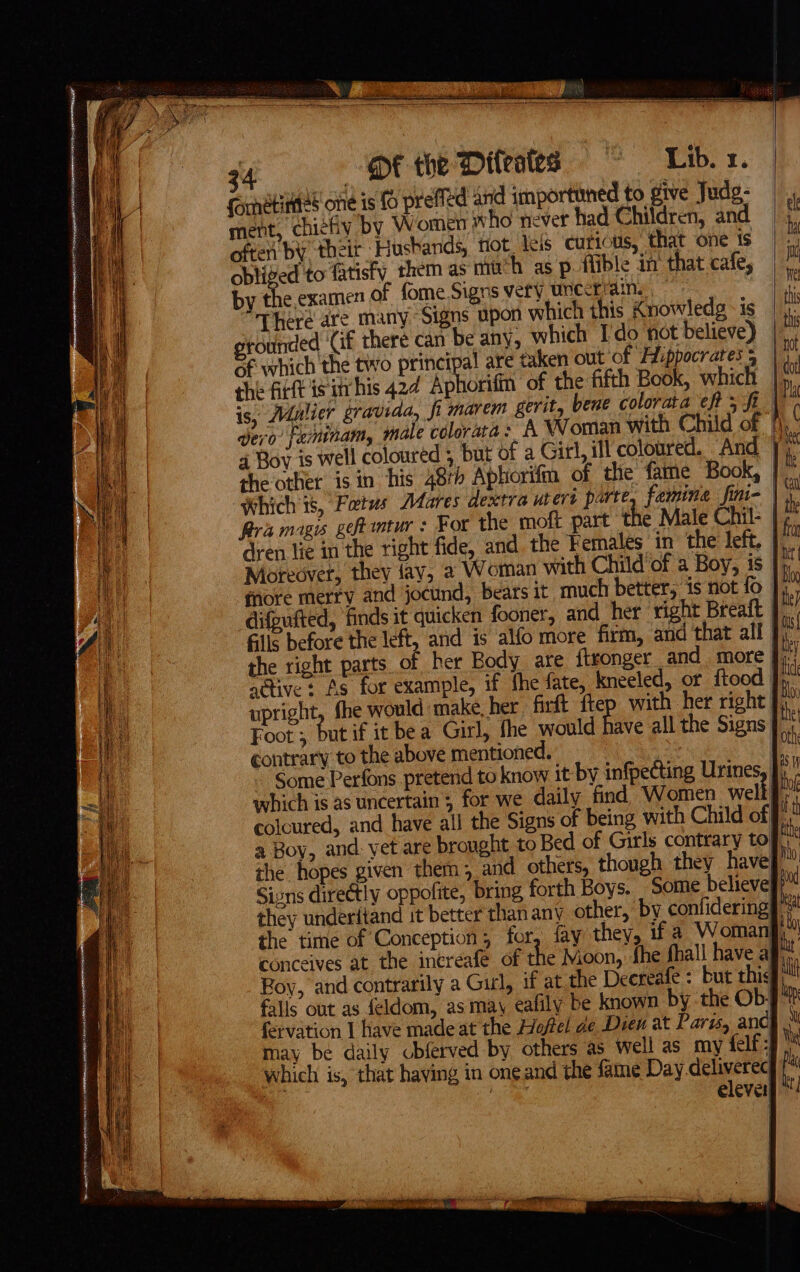 34 Of the Diſeaſes Lib. 1.
ſometimes one is ſo preſſed and importuned to give Judg-
ment, chiefly by Women who never had Children, and
often by their Husbands, not leſs curious, that one is
obliged to ſatisfy them as much as poſſible in that caſe,
by the examen of ſome Signs very uncertain.
There are many Signs upon which this Knowledg is
grounded (if there can be any, which I do not believe)
of which the two principal are taken out of Hippocrates;
the firſt is in his 42d Aphoriſm of the fifth Book, which
is, Mulier gravida, ſi marem gerit, bene colorata eſt; ſi
vero fæminam, male colorata: A Woman with Child of
a Boy is well coloured; but of a Girl, ill coloured. And
the other is in his 48th Aphoriſm of the ſame Book,
which is, Fœtus Mares dextra uteri parte, femina ſini-
ſtra magis geſtantur: For the moſt part the Male Chil-
dren lie in the right ſide, and the Females in the left.
Moreover, they ſay, a Woman with Child of a Boy, is
more merry and jocund, bears it much better, is not ſo
diſguſted, finds it quicken ſooner, and her right Breaſt
fills before the left, and is alſo more firm, and that all
the right parts of her Body are ſtronger and more
active: As for example, if ſhe ſate, kneeled, or ſtood
upright, ſhe would make her firſt ſtep with her right
Foot; but if it be a Girl, ſhe would have all the Signs
contrary to the above mentioned.
Some Perſons pretend to know it by inſpecting Urines,
which is as uncertain; for we daily find Women well
coloured, and have all the Signs of being with Child of
a Boy, and yet are brought to Bed of Girls contrary to
the hopes given them; and others, though they have
Signs directly oppoſite, bring forth Boys. Some believe
they underſtand it better than any other, by conſidering
the time of Conception; for, ſay they, if a Woman
conceives at the increaſe of the Moon, ſhe ſhall have a
Boy, and contrarily a Girl, if at the Decreaſe: but this
falls out as ſeldom, as may eaſily be known by the Ob-
ſervation I have made at the Hoſtel de Dieu at Paris, and
may be daily obſerved by others as well as my ſelf:
which is, that having in one and the ſame Day delivered
eleven